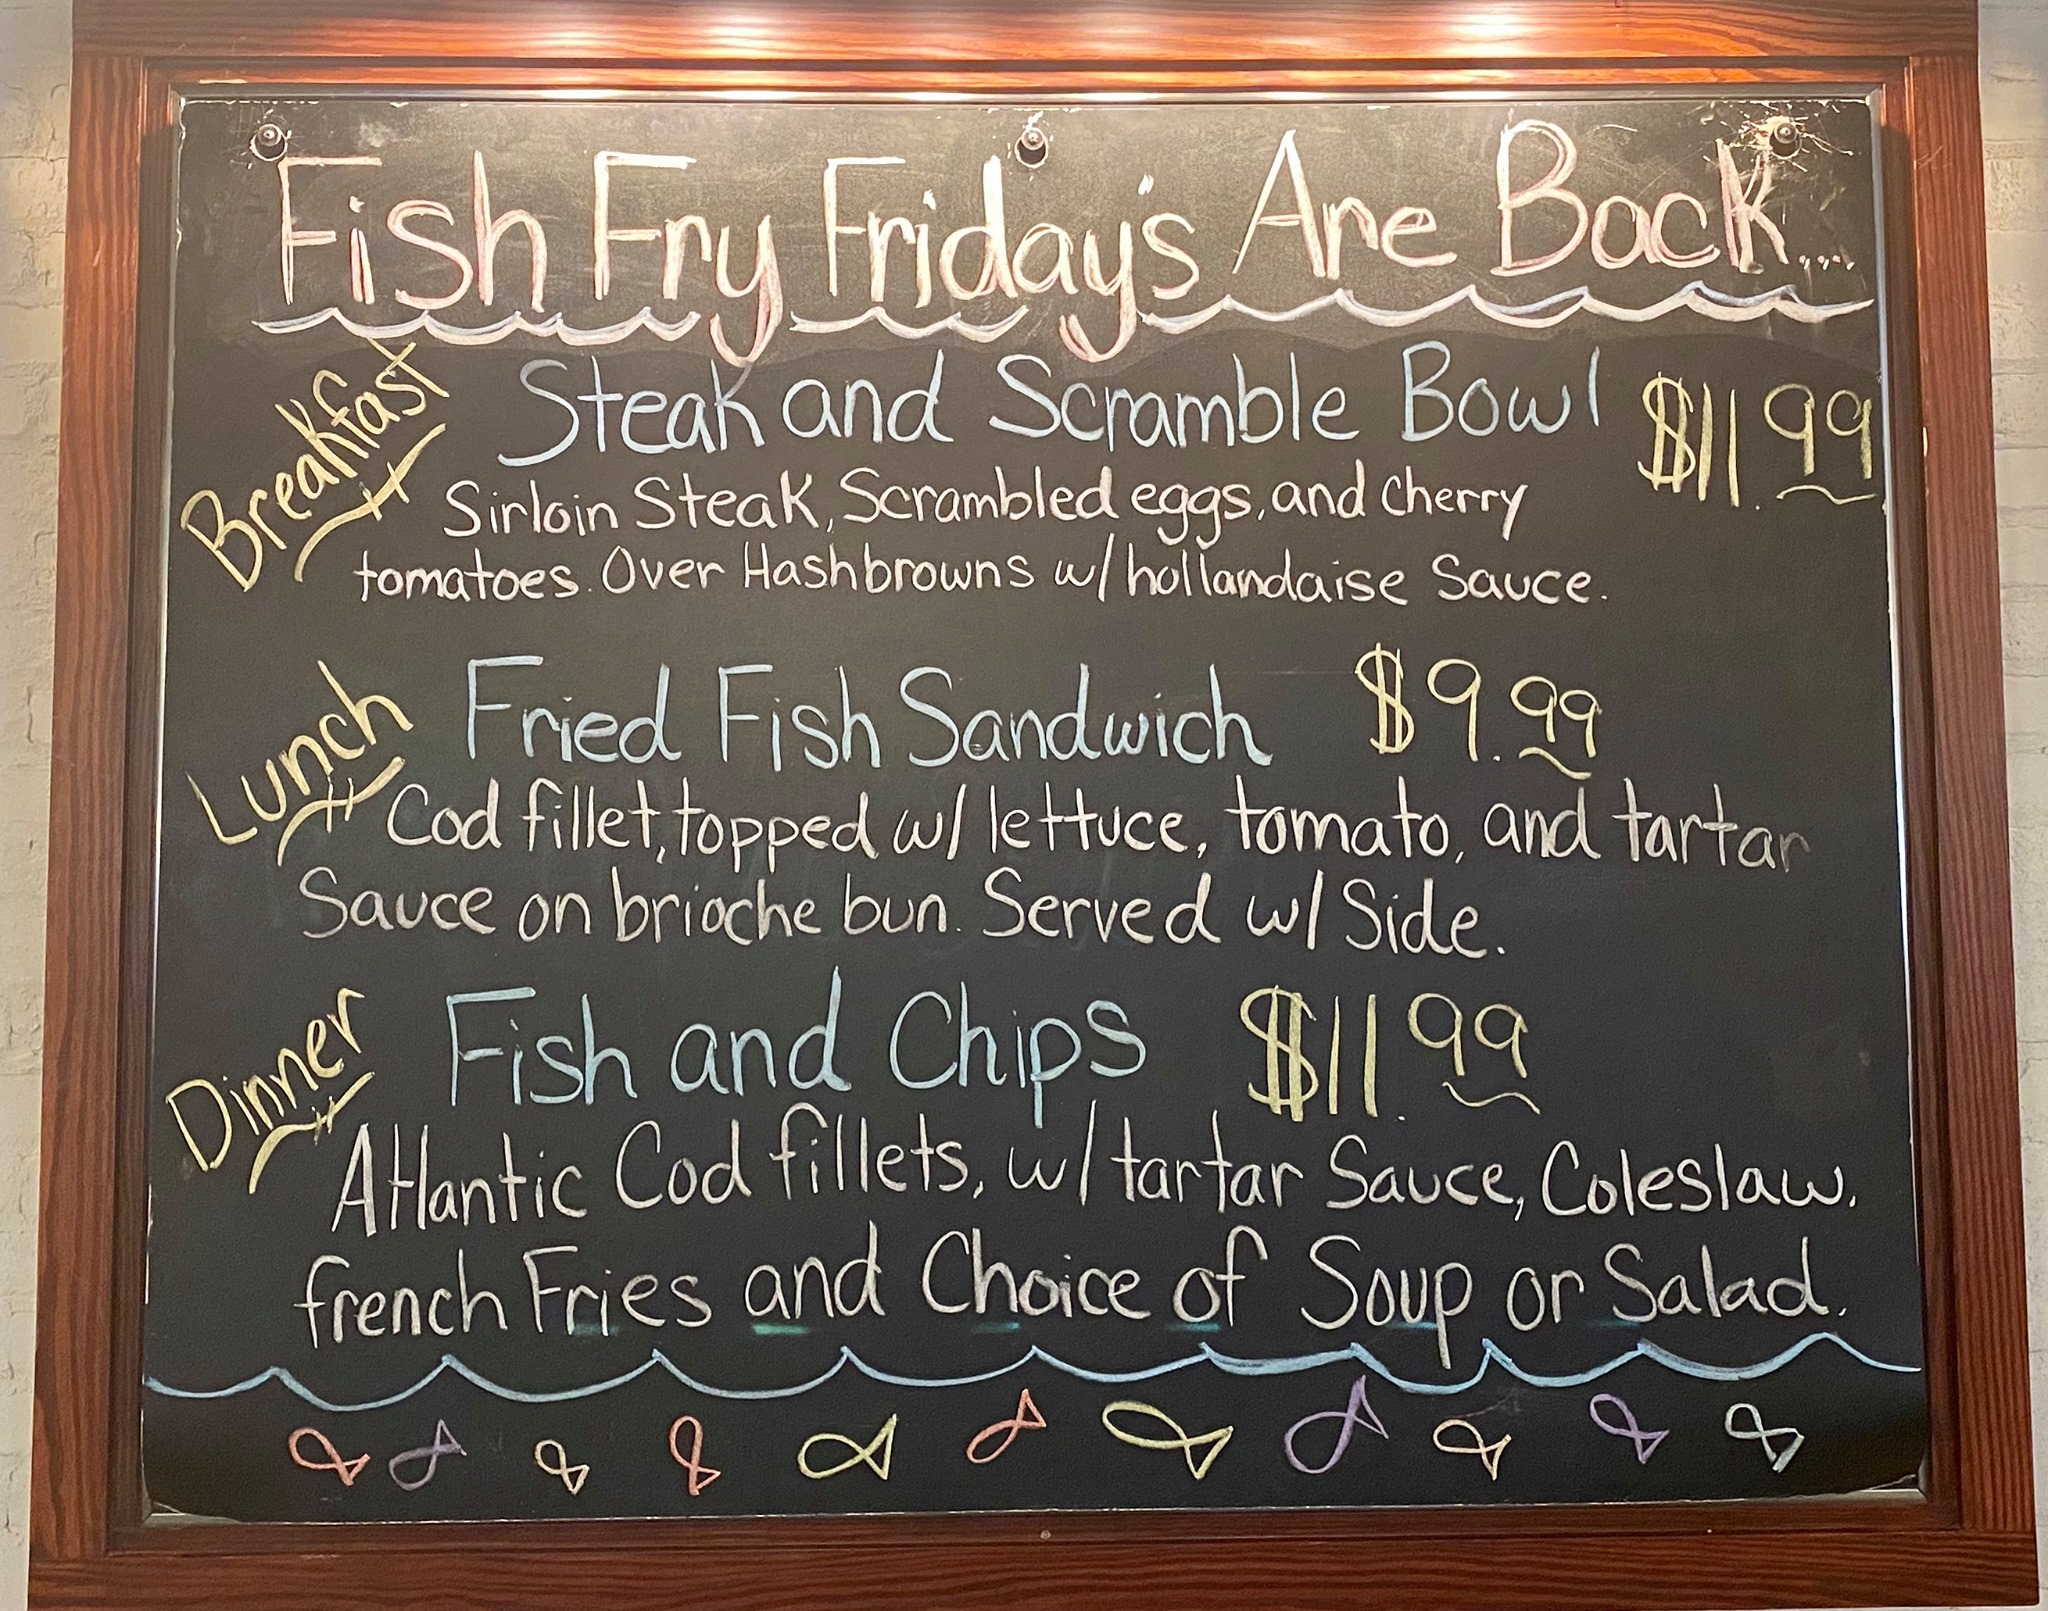 Fish Fry Friday's Are Back....
Breakfast
Steak and Scramble Bowl $11.99
Sirloin Steak, Scrambled eggs, and cherry
tomatoes. Over Hashbrowns w/ hollandaise Sauce.
Lunch
Fried Fish Sandwich $9.99
Cod fillet, topped w/ lettuce, tomato, and tartar
Sauce on brioche bun. Served w/ Side.
Dinner
Fish and Chips $11.99
Atlantic Cod fillets, w/ tartar Sauce, Coleslaw,
french Fries and Choice of Soup or Salad.